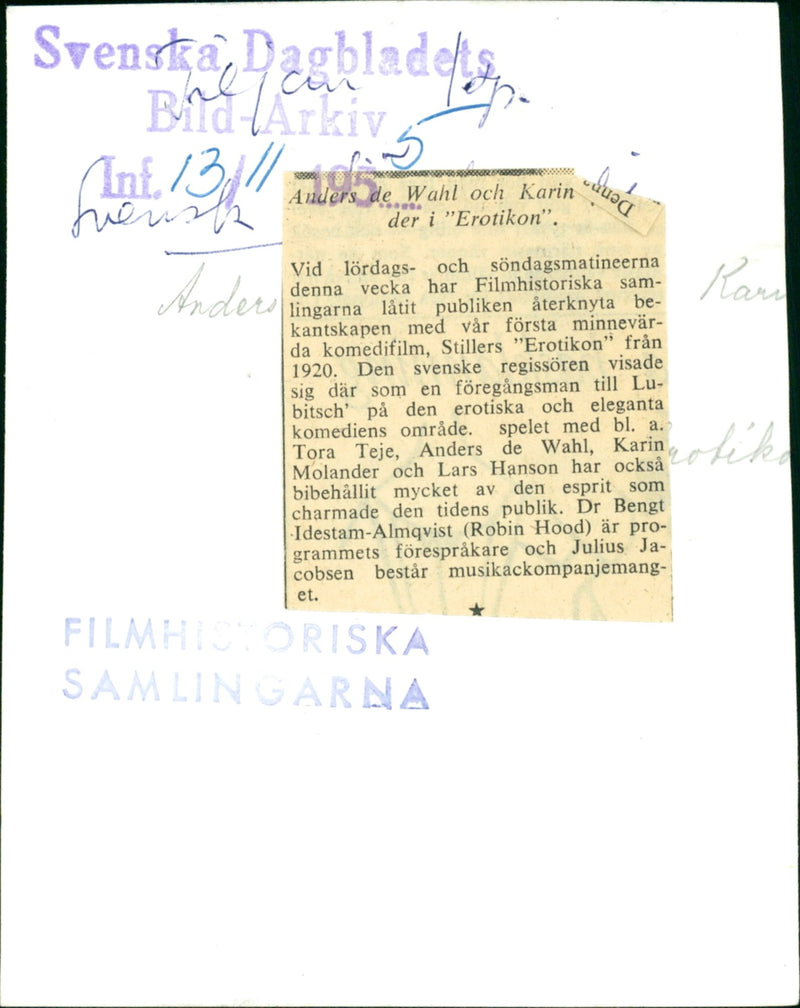 Svenska Dagbladets
Bild-Arkiv
Inf. 13/11 195 5
Svensk
Anders de Wahl och Karin
der i "Erotikon".
Denna
Vid lördags- och söndagsmatineerna
denna vecka har Filmhistoriska sam-
lingarna låtit publiken återknyta be-
kantskapen med vår första minnevär-
da komedifilm, Stillers "Erotikon" från
1920. Den svenske regissören visade
sig där som en föregångsman till Lu-
bitsch' på den erotiska och eleganta
komediens område. spelet med bl. a.
Tora Teje, Anders de Wahl, Karin
Molander och Lars Hanson har också
bibehållit mycket av den esprit som
charmade den tidens publik. Dr Bengt
Idestam-Almqvist (Robin Hood) är pro-
grammets förespråkare och Julius Ja-
cobsen består musikackompanjemang-
et.
Anders
Karin
rotiko
FILMHISTORISKA
SAMLINGARNA